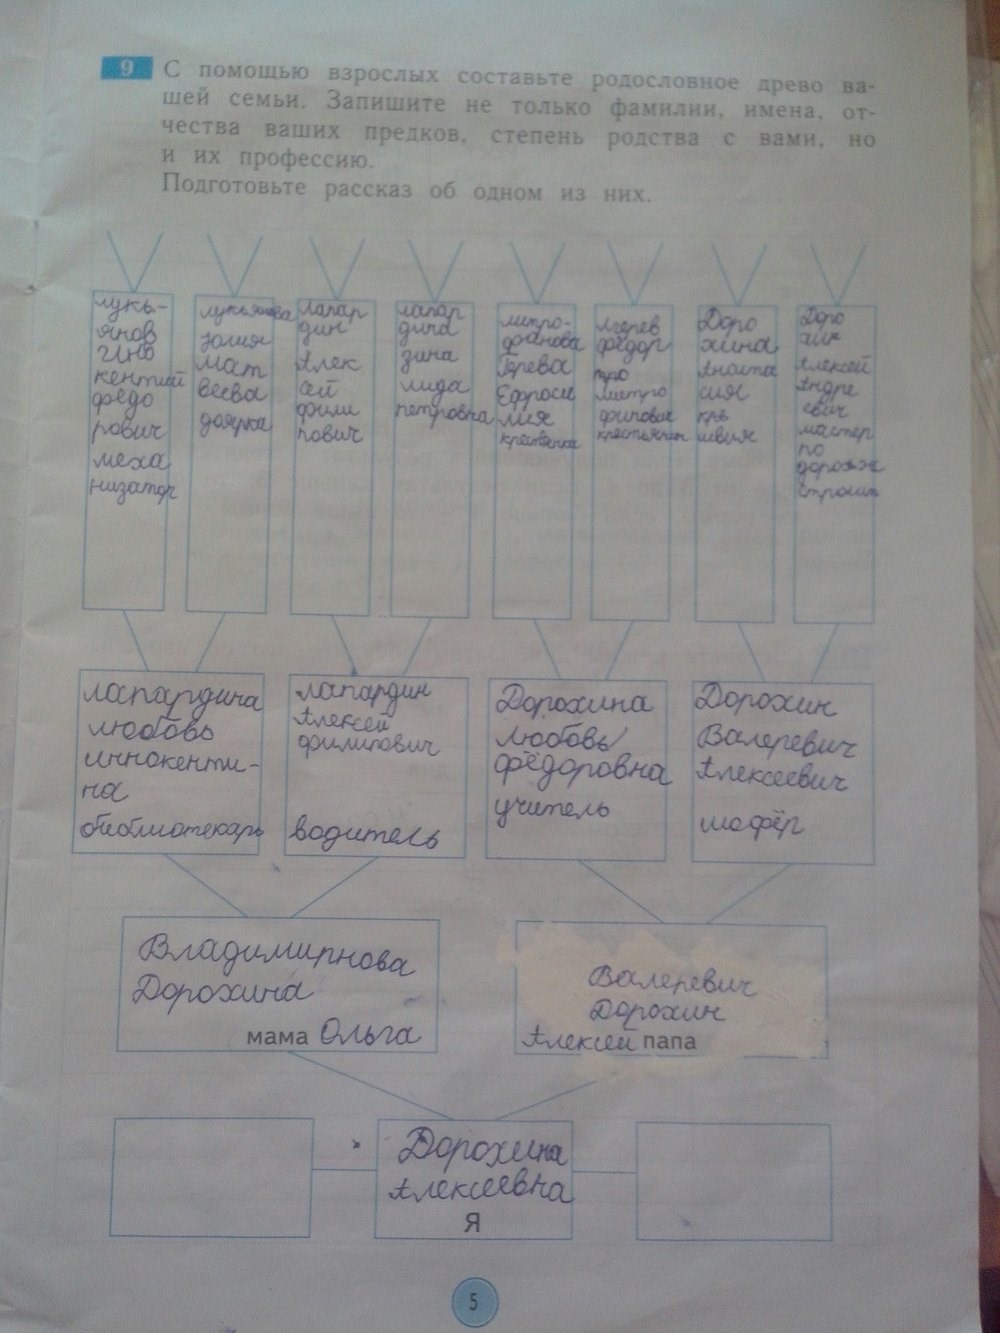 9 С помощью взрослых составьте родословное древо ва-
шей семьи. Запишите не только фамилии, имена, от-
чества ваших предков, степень родства с вами, но
и их профессию.
Подготовьте рассказ об одном из них.
лукь-
янов
инно
кентий
федо
рович
меха
низатор
лукьянова
юлия
мат
веева
доярка
лапар
дин
Алек
сей
фили
пович
лапар
дина
зина
лида
петровна
митро-
фанова
Ефроси
крестьянка
фёдор
митро
фанович
крестьянин
Доро
хина
Анаста
сия
шв��я
Доро
хин
Алексей
Андре
евич
мастер
по
дорожн
лапардина
любовь
иннокенти-
на
библиотекарь
лапардин
Алексей
филипович
водитель
Дорохина
любовь
фёдоровна
учитель
Дорохин
Валеревич
Алексеевич
шофёр
Владимирнова
Дорохина
мама Ольга
Валеревич
Дорохин
Алексей папа
Дорохина
Алексеевна
я
5